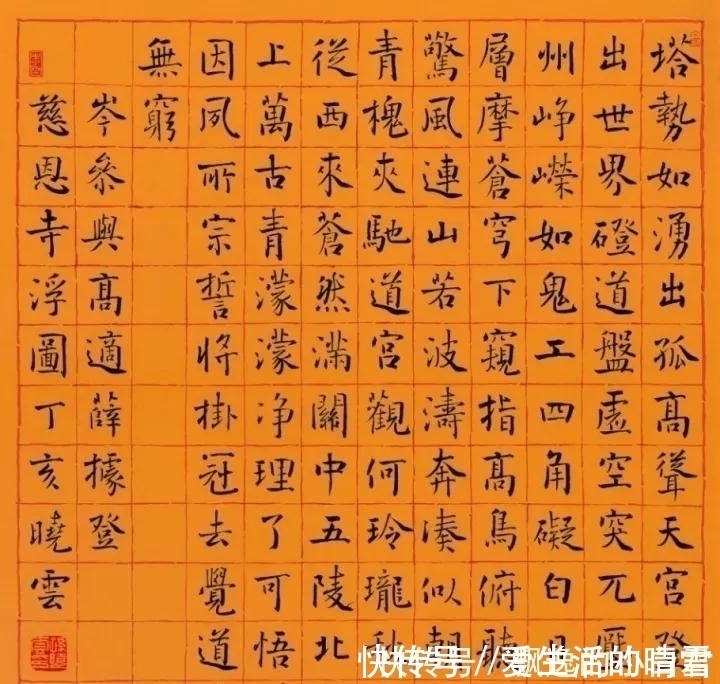 塔勢如湧出孤高聳天宮登
出世界磴道盤虛空突兀
州崢嶸如鬼工四角礙白日
層摩蒼穹下窺指高鳥俯聽
驚風連山若波濤奔湊似朝
青槐夾馳道宮觀何玲瓏秋
從西來蒼然滿關中五陵北
上萬古青濛濛净理了可悟
因夙所宗誓將掛冠去覺道
無窮
岑參與高適薛據登
慈恩寺浮圖丁亥曉雲